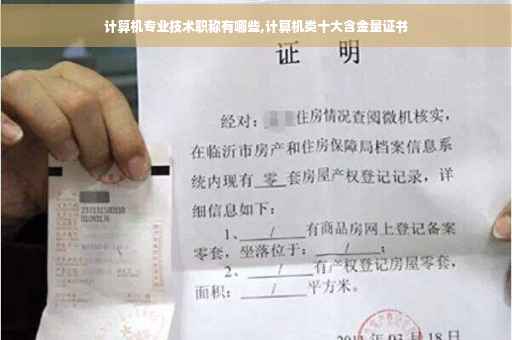 计算机专业技术职称有哪些,计算机类十大含金量证书
证 明
经对: 住房情况查阅微机核实,
在临沂市房产和住房保障局档案信息系
统内现有 零 套房屋产权登记记录,详
细信息如下:
1、 / 有商品房网上登记备案
零套,坐落位于: / ;
2、 / 有产权登记房屋零套,
面积: / 平方米。
18 日